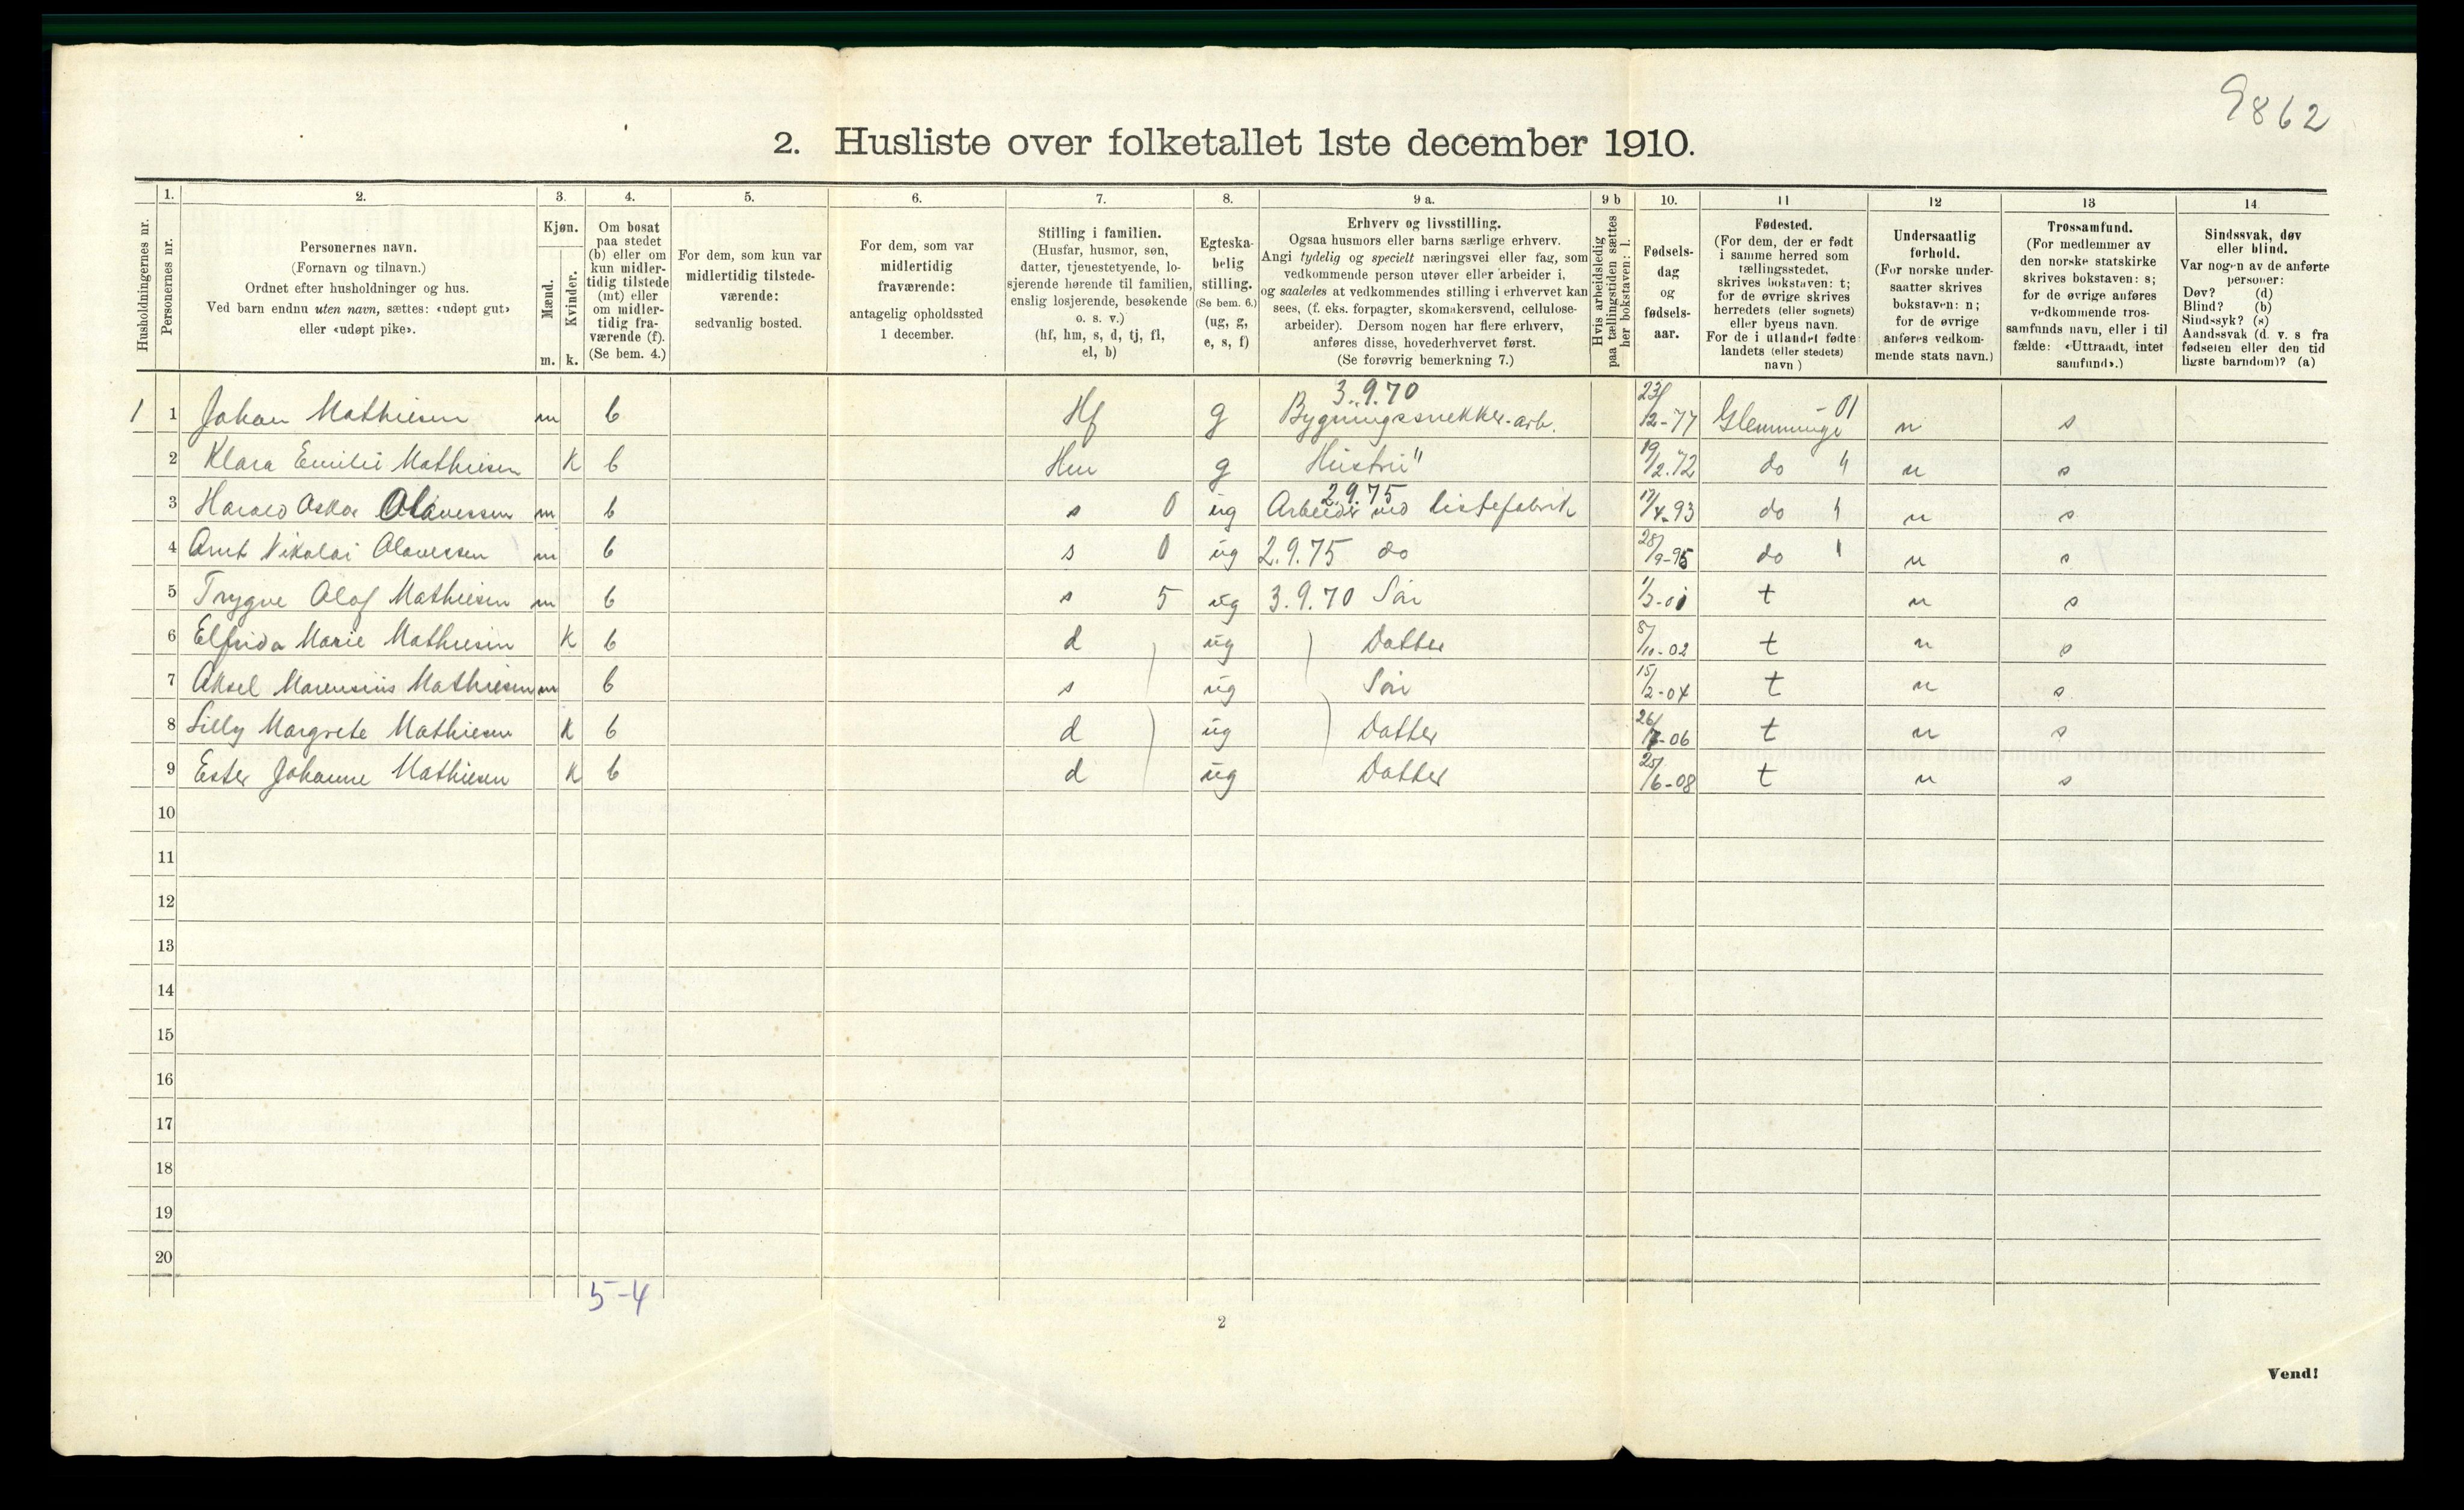 9862
2. Husliste over folketallet 1ste december 1910.
Husholdningernes nr.
1.
Personernes nr.
2.
Personernes navn.
(Fornavn og tilnavn.)
Ordnet efter husholdninger og hus.
Ved barn endnu uten navn, sættes: «udøpt gut»
eller «udøpt pike».
3.
Kjøn.
Mænd.
m.
Kvinder.
k.
4.
Om bosat
paa stedet
(b) eller om
kun midler-
tidig tilstede
(mt) eller
om midler-
tidig fra-
værende (f).
(Se bem. 4.)
5.
For dem, som kun var
midlertidig tilstede-
værende:
sedvanlig bosted.
6.
For dem, som var
midlertidig
fraværende:
antagelig opholdssted
1 december.
7.
Stilling i familien.
(Husfar, husmor, søn,
datter, tjenestetyende, lo-
sjerende hørende til familien,
enslig losjerende, besøkende
o. s. v.)
(hf, hm, s, d, tj, fl,
el, b)
8.
Egteska-
belig
stilling.
(Se bem. 6.)
(ug, g,
e, s, f)
9 a.
Erhverv og livsstilling.
Ogsaa husmors eller barns særlige erhverv.
Angi tydelig og specielt næringsvei eller fag, som
vedkommende person utøver eller arbeider i,
og saaledes at vedkommendes stilling i erhvervet kan
sees, (f. eks. forpagter, skomakersvend, cellulose-
arbeider). Dersom nogen har flere erhverv,
anføres disse, hovederhvervet først.
(Se forøvrig bemerkning 7.)
9 b
Hvis arbeidsledig
paa tællingstiden sættes
her bokstaven: l.
10.
Fødsels-
dag
og
fødsels-
aar.
11
Fødested.
(For dem, der er født
i samme herred som
tællingsstedet,
skrives bokstaven: t;
for de øvrige skrives
herredets (eller sognets)
eller byens navn.
For de i utlandet fødte:
landets (eller stedets)
navn)
12
Undersaatlig
forhold.
(For norske under-
saatter skrives
bokstaven: n;
for de øvrige
anføres vedkom-
mende stats navn.)
13
Trossamfund.
(For medlemmer av
den norske statskirke
skrives bokstaven: s;
for de øvrige anføres
vedkommende tros-
samfunds navn, eller i til
fælde: «Uttraadt, intet
samfund».)
14
Sindssvak, døv
eller blind.
Var nogen av de anførte
personer:
Døv? (d)
Blind? (b)
Sindssyk? (s)
Aandssvak (d. v. s fra
fødselen eller den tid
ligste barndom)? (a)
3.9.70
1 1 Johan Mathiesen m b Hf g Bygningssnekker-arb. 23/12-77 Glemminge -01 n s
2 Klara Emilie Mathiesen k b Hm g Hustru " 19/2.72 do " n s
2.9.75
3 Harald Oskar Olavessen m b s 0 ug Arbeider ved listefabrik 17/4-93 do " n s
4 Arnt Nikolai Olavessen m b s 0 ug 2.9.75 do 28/9-95 do " n s
5 Trygve Olaf Mathiesen m b s 5 ug 3.9.70 Søn t n s
6 Elfrida Marie Mathiesen k b d ug Datter 5/10-02 t n s
7 Aksel Marensius Mathiesen m b s ug Søn 15/2-04 t n s
8 Lilly Margrete Mathiesen k b d ug Datter 26/7-06 t n s
9 Ester Johanne Mathiesen k b d ug Datter 25/6-08 t n s
10
11
12
13
14
15
16
17
18
19
20
5-4
2
Vend!